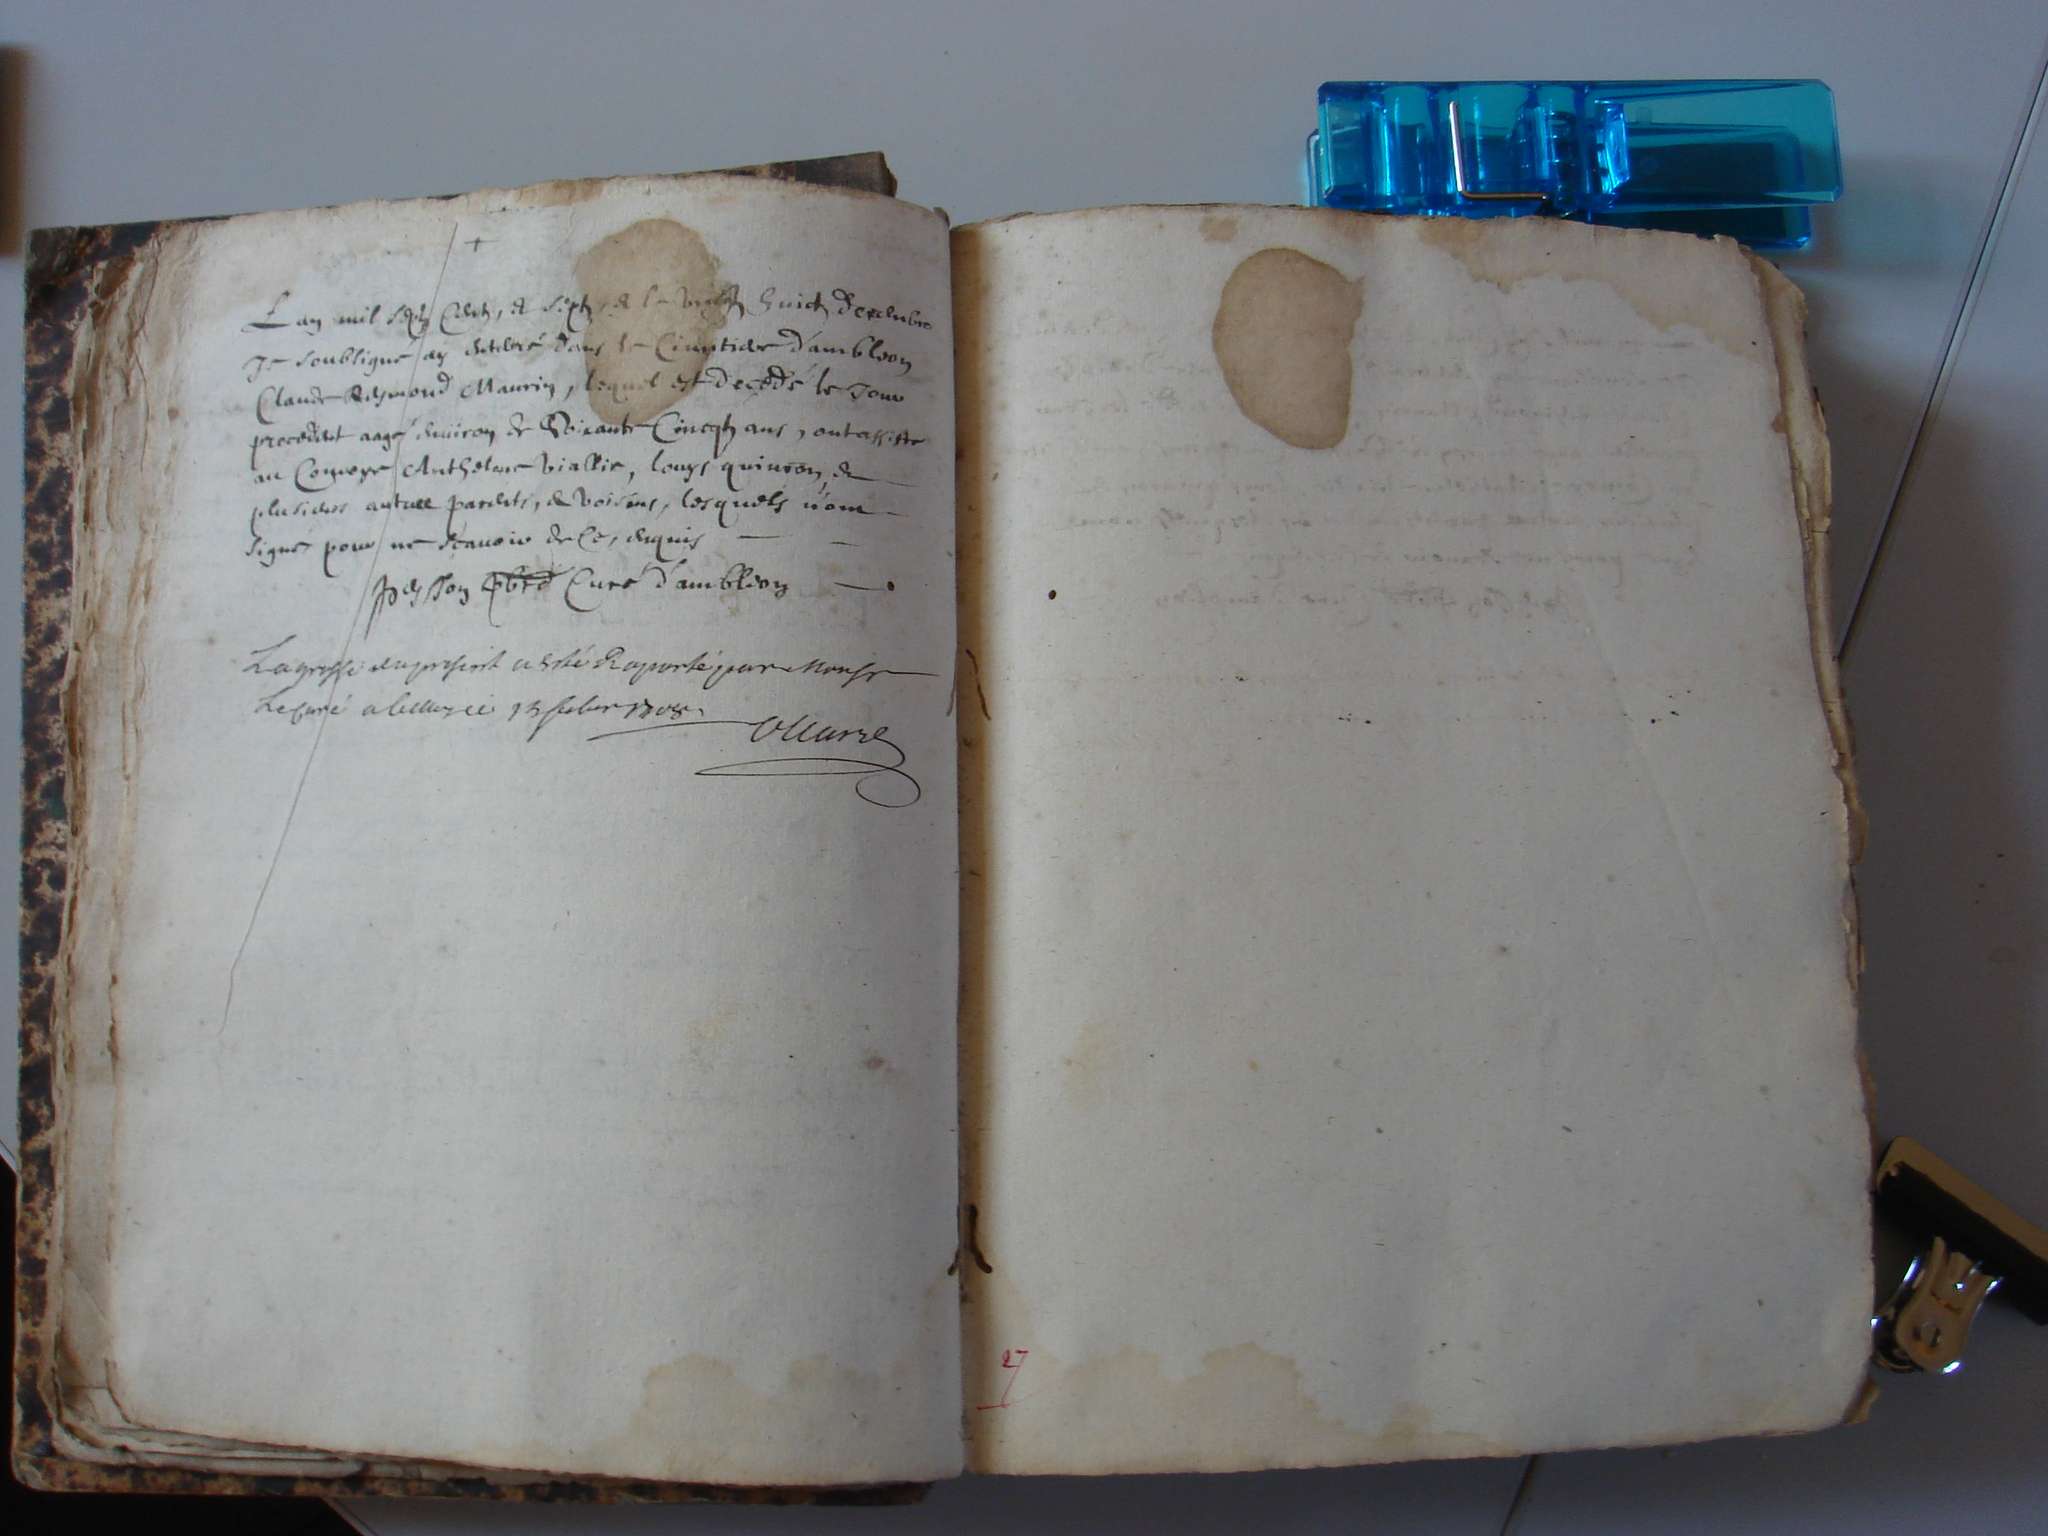 +
Lan mil sept Cents, et sept, et le vingt huict decembre
Je soubsigné ay enterré dans le Cimetiere d'ambleon
Claude Reymond Maurin, lequel est decedé le Jour
precedent aagé environ de Soixante Cincqz ans, ont assisté
au Convoye Anthelme Viallie, Louys quinson, et
plusieurs autres parents, et voisins, lesquels n'ont
signé pour ne sçavoir de Ce, enquis
pbre Curé d'ambleon
La grosse du present a esté Raporté par Monsr
Le Curé a 1708
27